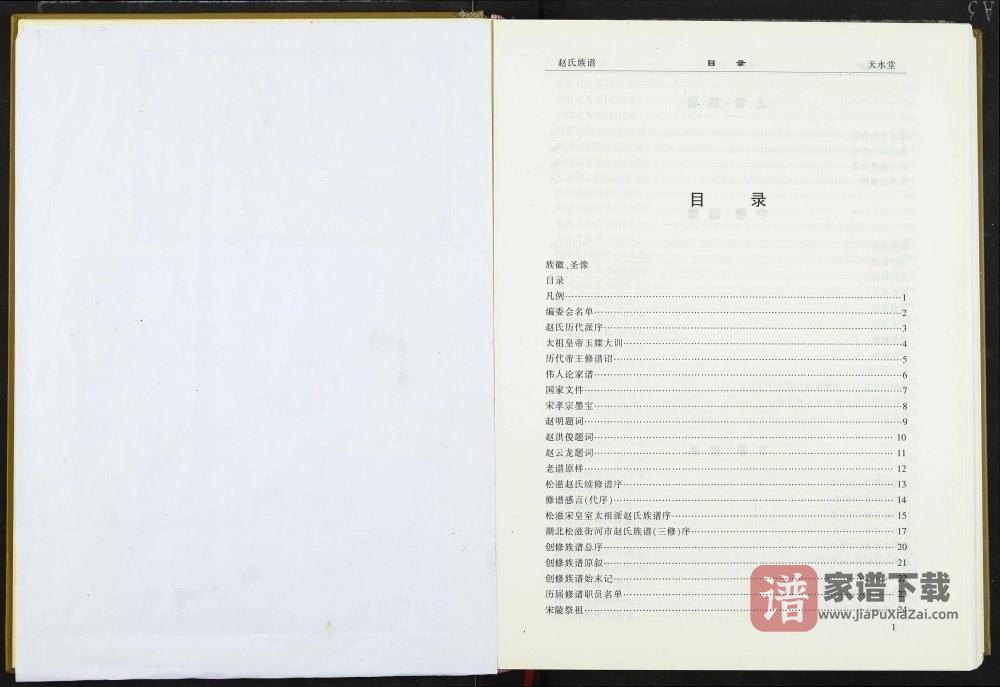 A3
赵氏族谱 目 录 天水堂
目 录
族徽、圣像
目录
凡例……1
编委会名单……2
赵氏历代派序……3
太祖皇帝玉牒大训……4
历代帝王修谱诏……5
伟人论家谱……6
国家文件……7
宋孝宗墨宝……8
赵明题词……9
赵洪俊题词……10
赵云龙题词……11
老谱原样……12
松滋赵氏续修谱序……13
修谱感言(代序)……14
松滋宋皇室太祖派赵氏族谱序……15
湖北松滋街河市赵氏族谱(三修)序……17
创修族谱总序……20
创修族谱原叙……21
创修族谱始末记……22
历届修谱职员名单……23
宋陵祭祖……24
1
谱 家谱下载
www.JiaPuXiaZai.com